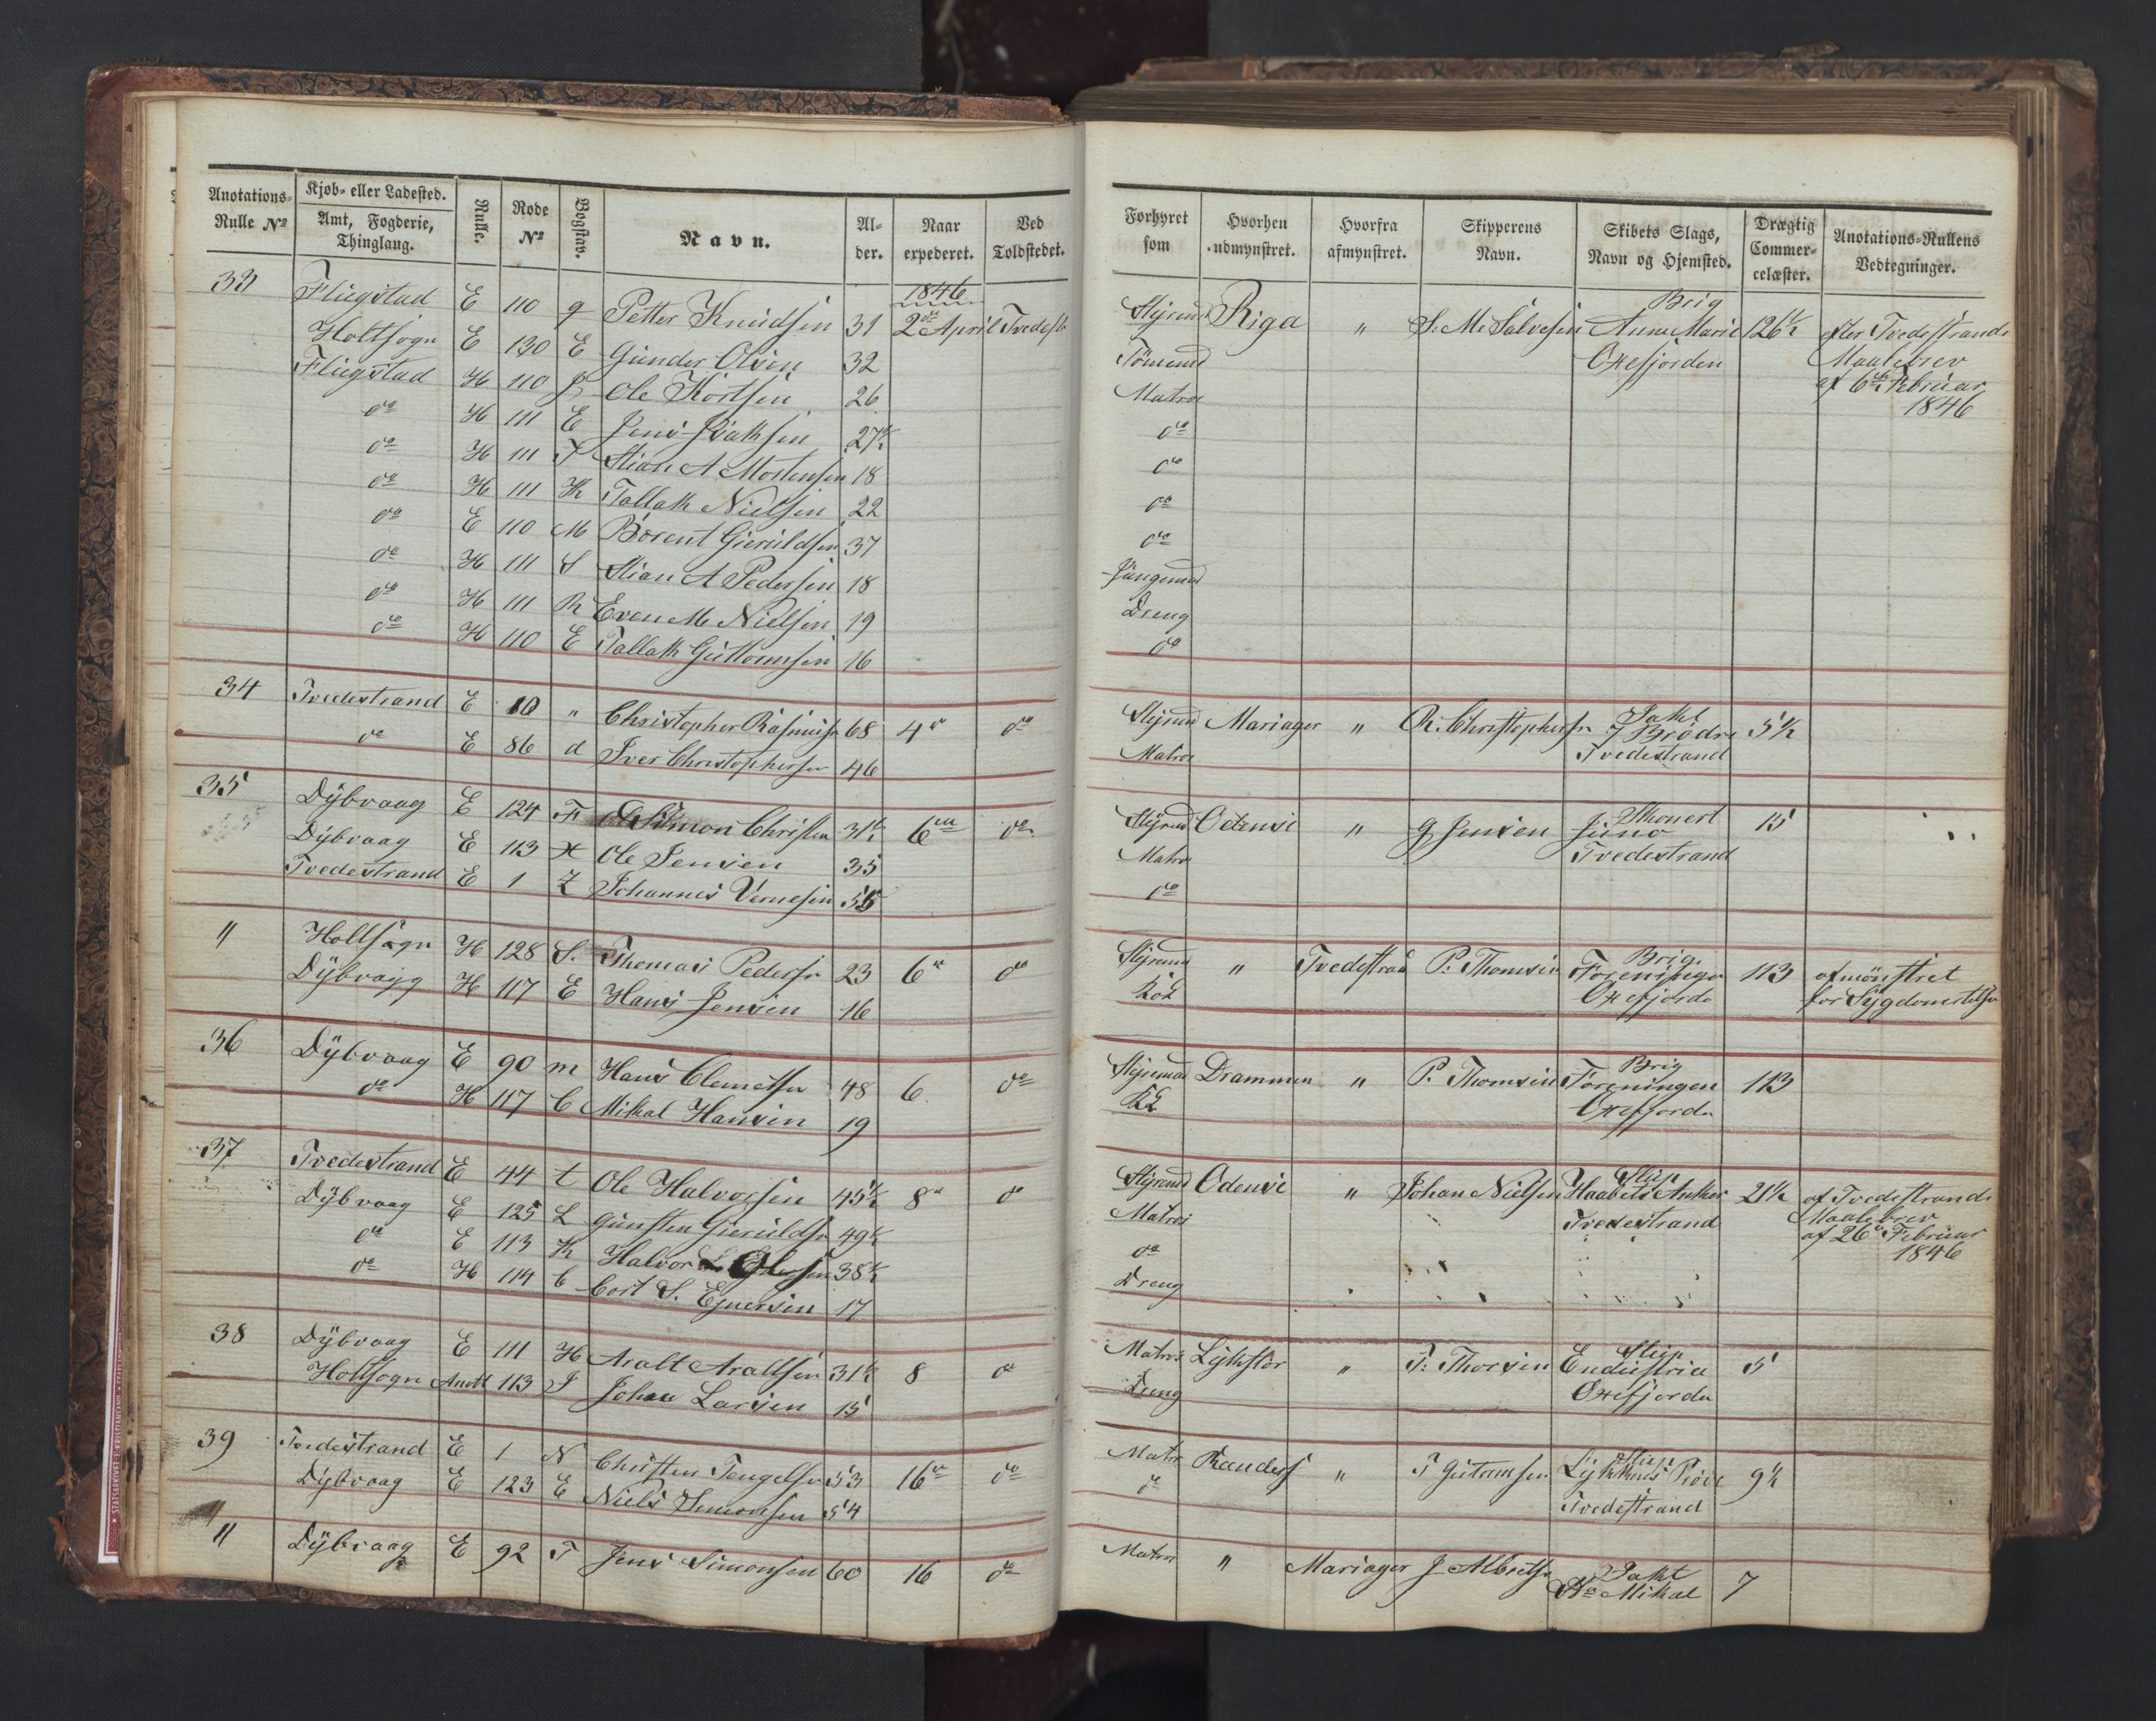 Anotations-Rulle No | Kjøb- eller Ladested. Amt, Fogderie, Thinglaug. | Rulle. | Rode No | Bogstav. | Navn. | Alder. | Naar expederet. | Ved Toldstedet. | Forhyret som | Hvorhen udmynstret. | Hvorfra afmynstret. | Skipperens Navn. | Skibets Slags, Navn og Hjemsted. | Drægtig Commercelæster. | Anotations-Rullens Vedtegninger.
1846
33 | Flügstad | E | 110 | g | Petter Knudsen | 31 | 2de April | Tvedest | Styrmd | Riga | " | S. M. Salvesen | Brig Anna Marie Oxefjorden | 126 1/2 | efter Tvedestrands Maalebrev af 6te Februar 1846
Holtsogn | E | 130 | E | Gunder Olsen | 32 | Tömmd
Flügstad | H | 110 | Ole Kortsen | 26 | Matros
do | H | 111 | E | Jens Isaksen | 27 1/2 | do
do | H | 111 | T | Stian A Mortensen | 18 | do
do | H | 111 | K | Tallak Nielsen | 22 | do
do | E | 110 | M | Börent Gieruldsen | 37 | do
do | H | 111 | S | Stian A Pedersen | 18 | Jungmd
do | H | 111 | R | Even M Nielsen | 19 | Dreng
do | H | 110 | E | Tallak Guttormsen | 16 | do
34 | Tvedestrand | E | 10 | " | Christopher Rasmusn | 68 | 4de | do | Styrmd | Mariager | " | R. Christophersn | Jakt 7 Brödre Tvedestrand | 5 1/2
do | E | 86 | d | Iver Christophersen | 46 | Matros
35 | Dÿbvaag | E | 124 | F | Simon Christen | 31 1/2 | 6te | do | Styrmd | Odense | " | G Jensen | Skonert Juno Tvedestrand | 15
Dÿbvaag | E | 113 | Ole Jensen | 35 | Matros
Tvedestrand | E | 1 | Z | Johannes Vernesen | 55 | do
" | Holtsogn | H | 128 | S. | Thomas Pedersn | 23 | 6te | do | Styrmd | " | Tvedestrad | P. Thomsen | Brig. Foreningen Oxefjorde | 113 | afmönstret for Sÿgdomstilfe
Dÿbvaag | H | 117 | E | Hans Jensen | 16 | Kok
36 | Dÿbvaag | E | 90 | m | Hans Clemetsen | 48 | 6 | do | Styrmad | Drammen | " | P. Thomsen | Brig Foreningen Oxefjorde | 113
do | H | 117 | C | Mikal Hansen | 19 | Kok
37 | Tvedestrand | E | 44 | t | Ole Halvorsen | 45 1/2 | 8de | do | Styrmd | Odense | " | Johan Nielsen | Slup Haabets Anker Tvedestrand | 21 1/2 | af Tvedestrands Maalebrev af 26de Februar 1846
Dÿbvaag | E | 125 | L | Gunsten Gieruldsn | 49 1/2 | Matros
do | E | 113 | K | Halvor | 38 1/2 | do
do | H | 114 | C | Cort S. Ejnersen | 17 | Dreng
38 | Dÿbvaag | E | 111 | H | Aralt Araltsen | 31 1/2 | 8 | do | Matros | Lÿkstör | " | T. Thorsen | Slup Endustrie Oxefjorde | 5
Holtsogn | Anott | 113 | J | Johan Larsen | 15 | Dreng
39 | Tvedestrand | E | 1 | N | Christen Tengelsen | 53 | 16de | do | Matros | Randers | " | T Gutormsen | Slup Lÿkkens Pröve Tvedestrand | 9 1/2
Dÿbvaag | E | 123 | E | Niels Simonsen | 54 | do
" | Dÿbvaag | E | 92 | T | Jens Simonsen | 60 | 16 | do | Matros | " | Mariager | J Albretsn | Jakt St Mikal | 7